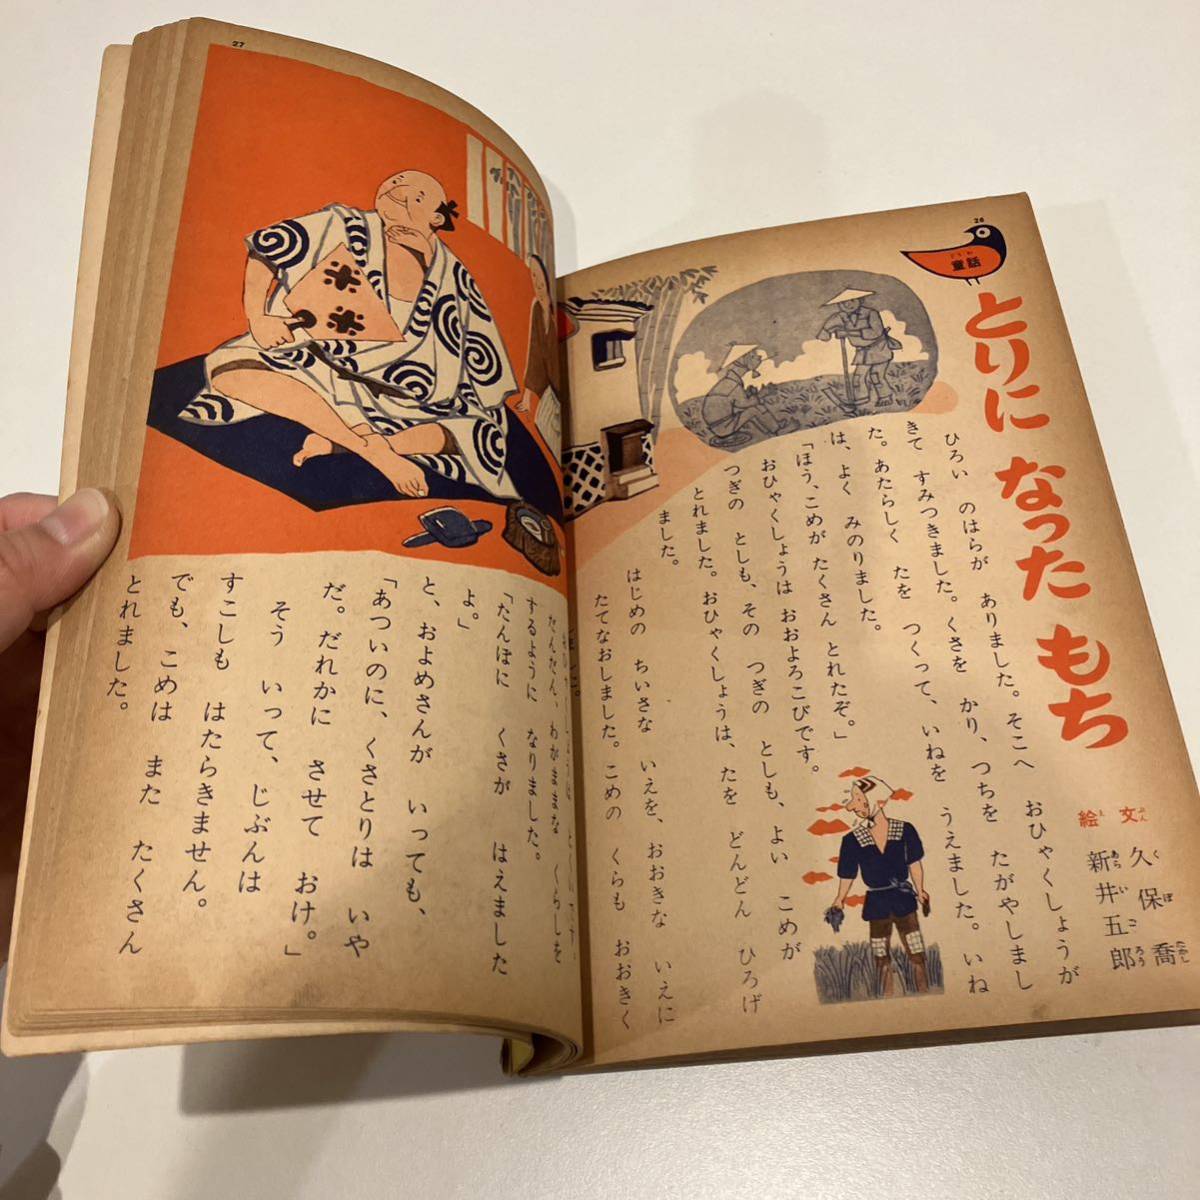 26
どうわ
童話
とりになったもち
文 久保喬
絵 新井五郎
ひろい のはらが ありました。そこへ おひゃくしょうが
きて すみつきました。くさを かり、つちを たがやしまし
た。あたらしく たを つくって、いねを うえました。いね
は、よく みのりました。
「ほう、こめが たくさん とれたぞ。」
おひゃくしょうは おおよろこびです。
つぎの としも、その つぎの としも、よい こめが
とれました。おひゃくしょうは、たを どんどん ひろげ
ました。
はじめの ちいさな いえを、おおきな いえに
たてなおしました。こめの くらも おおきく
27
米
米
だんだん、わがままな くらしを
するように なりました。
「たんぼに くさが はえました
よ。」
と、およめさんが いっても、
「あついのに、くさとりは いや
だ。だれかに させて おけ。」
そう いって、じぶんは
すこしも はたらきません。
でも、こめは また たくさん
とれました。